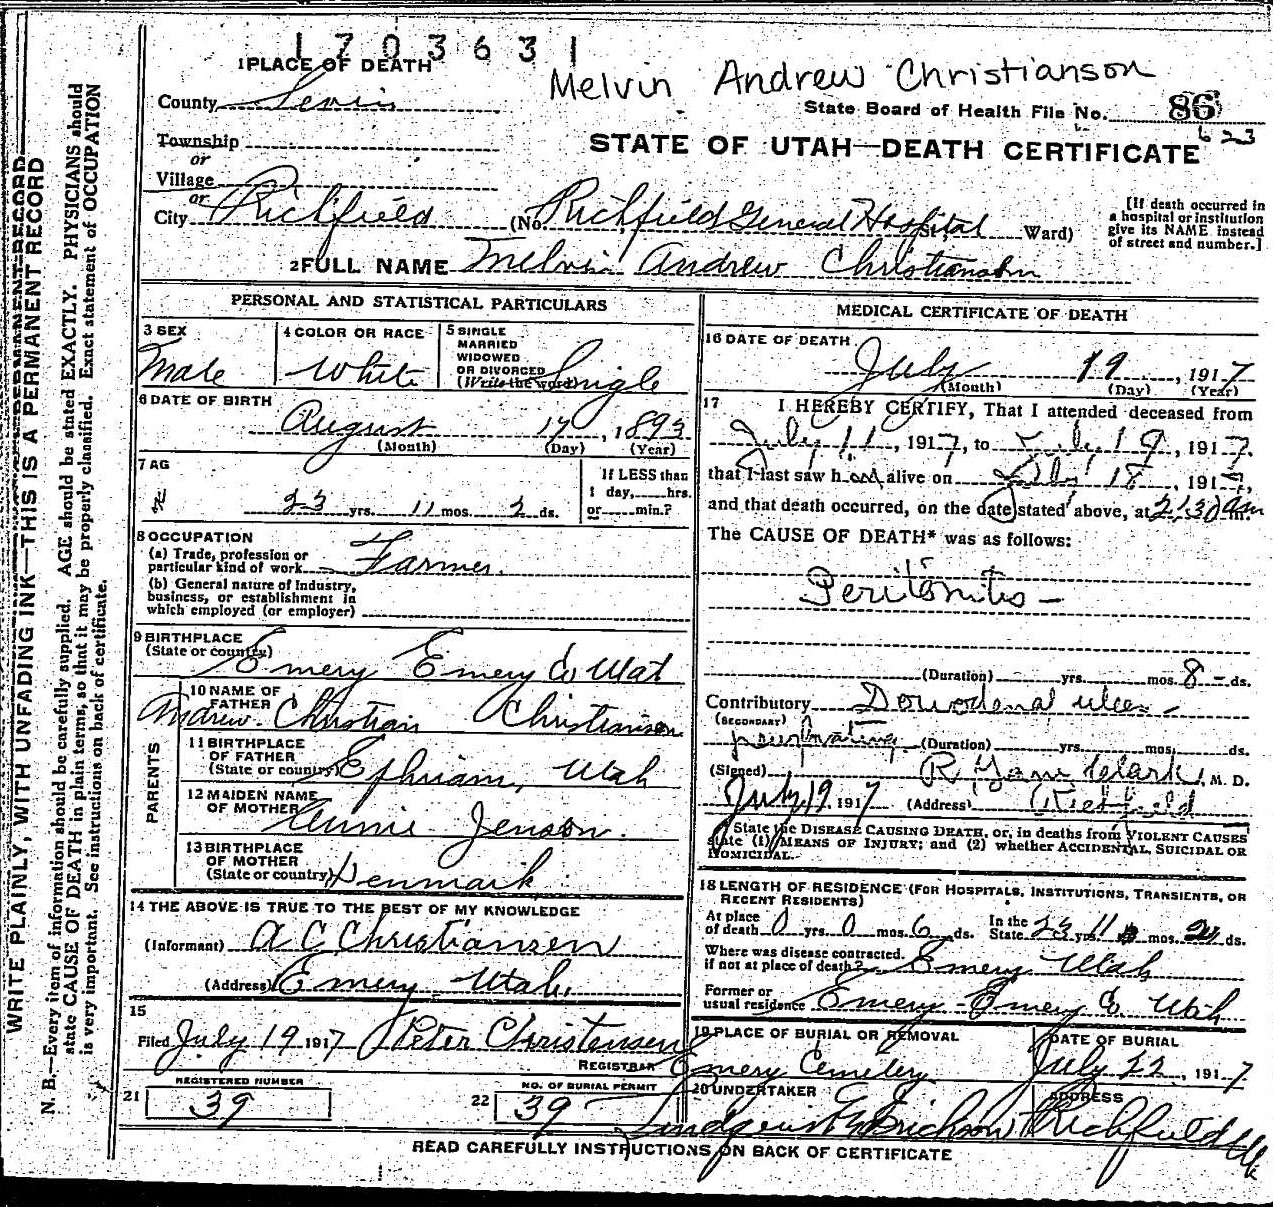 1703631
Melvin Andrew Christianson
1 PLACE OF DEATH
County Sevier
State Board of Health File No. 86
623
Township
or
Village
or
STATE OF UTAH—DEATH CERTIFICATE
City Richfield (No. Richfield General Hospital St., Ward)
[If death occurred in
a hospital or institution
give its NAME instead
of street and number.]
2 FULL NAME Melvin Andrew Christianson
PERSONAL AND STATISTICAL PARTICULARS
3 SEX
Male
4 COLOR OR RACE
White
5 SINGLE
MARRIED
WIDOWED
OR DIVORCED
(Write the word) Single
6 DATE OF BIRTH
August 17, 1893
(Month) (Day) (Year)
7 AG
23 yrs. 11 mos. 2 ds.
If LESS than
1 day, hrs.
or min.?
8 OCCUPATION
(a) Trade, profession or
particular kind of work Farmer
(b) General nature of Industry,
business, or establishment in
which employed (or employer)
9 BIRTHPLACE
(State or country)
Emery Emery Co Utah
PARENTS
10 NAME OF
FATHER
Andrew Christian Christiansen
11 BIRTHPLACE
OF FATHER
(State or country) Ephriam, Utah
12 MAIDEN NAME
OF MOTHER Annie Jenson.
13 BIRTHPLACE
OF MOTHER
(State or country) Denmark
14 THE ABOVE IS TRUE TO THE BEST OF MY KNOWLEDGE
(Informant) A C Christiansen
(Address) Emery Utah.
15
Filed July 19 1917 Peter Christensen
REGISTRAR
REGISTERED NUMBER
21 39
NO. OF BURIAL PERMIT
22 39
MEDICAL CERTIFICATE OF DEATH
16 DATE OF DEATH
July 19, 1917
(Month) (Day) (Year)
17 I HEREBY CERTIFY, That I attended deceased from
July 11, 1917, to July 19, 1917.
that I last saw h alive on July 18, 191
and that death occurred, on the date stated above, at 2:30 am
The CAUSE OF DEATH* was as follows:
Peritonitis—
(Duration) yrs. mos. 8 ds.
Contributory Dowodenal ulcer
(SECONDARY)
(Duration) yrs. mos. ds.
(Signed) Clark, M. D.
July 19 1917 (Address) Richfield
State the DISEASE CAUSING DEATH, or, in deaths from VIOLENT CAUSES
state (1) MEANS OF INJURY; and (2) whether ACCIDENTAL, SUICIDAL OR
HOMICIDAL.
18 LENGTH OF RESIDENCE (FOR HOSPITALS, INSTITUTIONS, TRANSIENTS, OR
RECENT RESIDENTS)
At place
of death 0 yrs 0 mos. 6 ds.
In the
State 23 yrs 11 mos. ds.
Where was disease contracted,
if not at place of death? Emery Utah
Former or
usual residence Emery - Emery Co. Utah
19 PLACE OF BURIAL OR REMOVAL
Emery Cemetery
DATE OF BURIAL
July 22, 1917
20 UNDERTAKER
Lindquist & Erickson
ADDRESS
Richfield Ut
READ CAREFULLY INSTRUCTIONS ON BACK OF CERTIFICATE
WRITE PLAINLY, WITH UNFADING INK—THIS IS A PERMANENT RECORD
N. B.—Every item of information should be carefully supplied. AGE should be stated EXACTLY. PHYSICIANS should
state CAUSE OF DEATH in plain terms, so that it may be properly classified. Exact statement of OCCUPATION
is very important. See instructions on back of certificate.